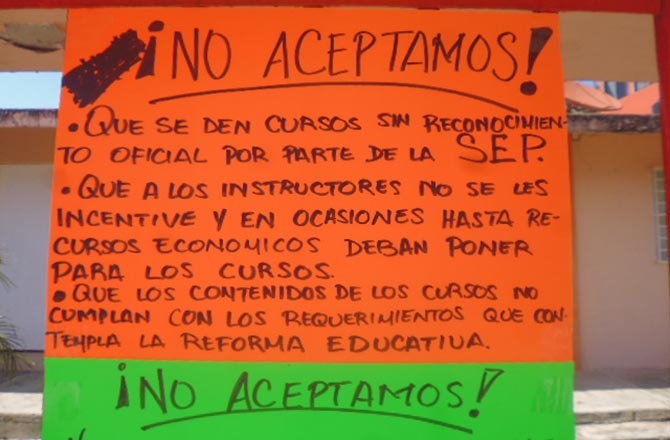 ¡NO ACEPTAMOS!
• QUE SE DEN CURSOS SIN RECONOCIMIEN-
TO OFICIAL POR PARTE DE LA SEP.
• QUE A LOS INSTRUCTORES NO SE LES
INCENTIVE Y EN OCASIONES HASTA RE-
CURSOS ECONOMICOS DEBAN PONER
PARA LOS CURSOS.
• QUE LOS CONTENIDOS DE LOS CURSOS NO
CUMPLAN CON LOS REQUERIMIENTOS QUE CON-
TEMPLA LA REFORMA EDUCATIVA.
¡NO ACEPTAMOS!